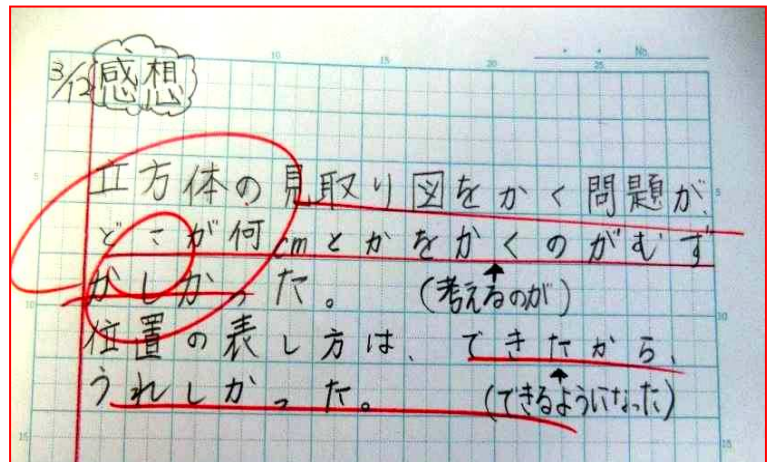 No.
10 15 20 25
3/12 感想
5 立方体の見取り図をかく問題が、 5
どこが何cmとかをかくのがむず
かしかった。 (考えるのが)
10 位置の表し方は、できたから、
うれしかった。 (できるようになった)
15